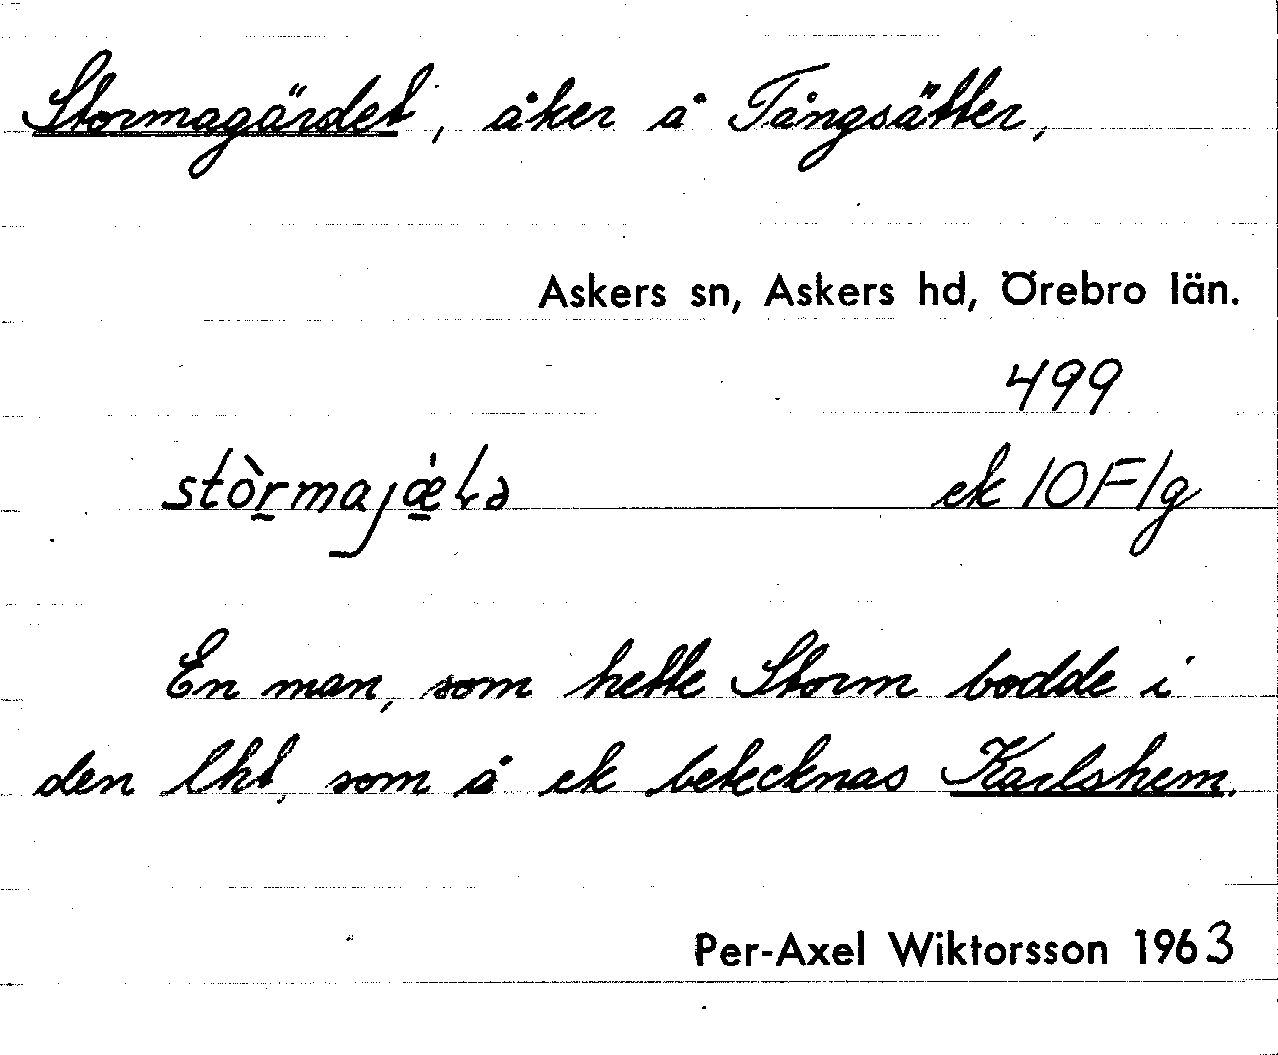 Stormagärdet, åker å Tångsätter,
Askers sn, Askers hd, Örebro län.
499
ek 10F1g
En man, som hette Storm bodde i
den lht, som å ek betecknas Karlshem.
Per-Axel Wiktorsson 1963